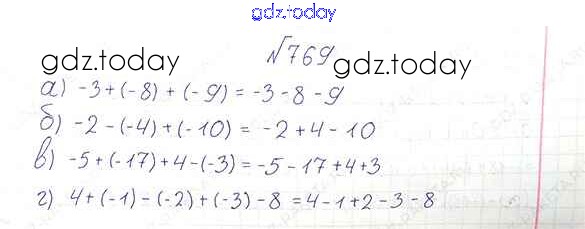 gdz.today
№769
gdz.today gdz.today
а) -3+(-8)+(-9)=-3-8-9
б) -2-(-4)+(-10)=-2+4-10
в) -5+(-17)+4-(-3)=-5-17+4+3
г) 4+(-1)-(-2)+(-3)-8=4-1+2-3-8